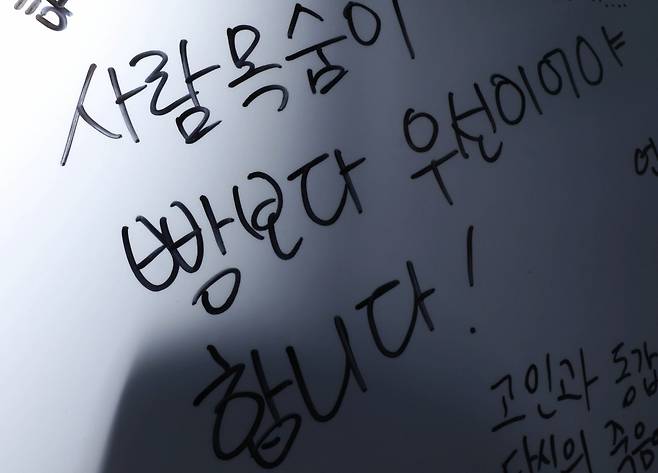 사람목숨이
빵보다 우선이어야
합니다!
고인과 동갑
당신의 죽음